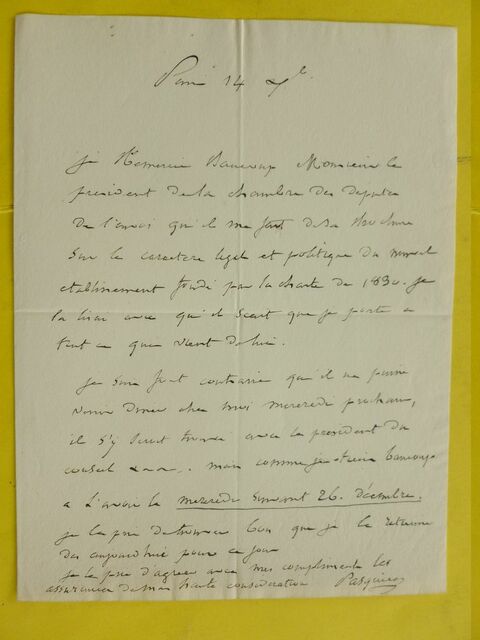 Paris 14 Xbre
je Remercie Beaucoup Monsieur le
président de la chambre des députés
de l'envoi qu'il me fait de sa Brochure
sur le caractère légal et politique du nouvel
établissement fondé par la charte de 1830. je
la lirai avec qu'il scait que je porte a
tout ce que vient de lui.
je suis fort contrarié qu'il ne puisse
venir diner chez moi mercredi prochain,
il s'y serait trouvé avec le président du
conseil mais comme je tiens beaucoup
a l'avoir le mercredi suivant 26. décembre,
je le prie de trouver bon que je le retienne
des aujourd'hui pour ce jour
je le prie d'agréer avec mes compliments les
assurances de ma haute considération Pasquier